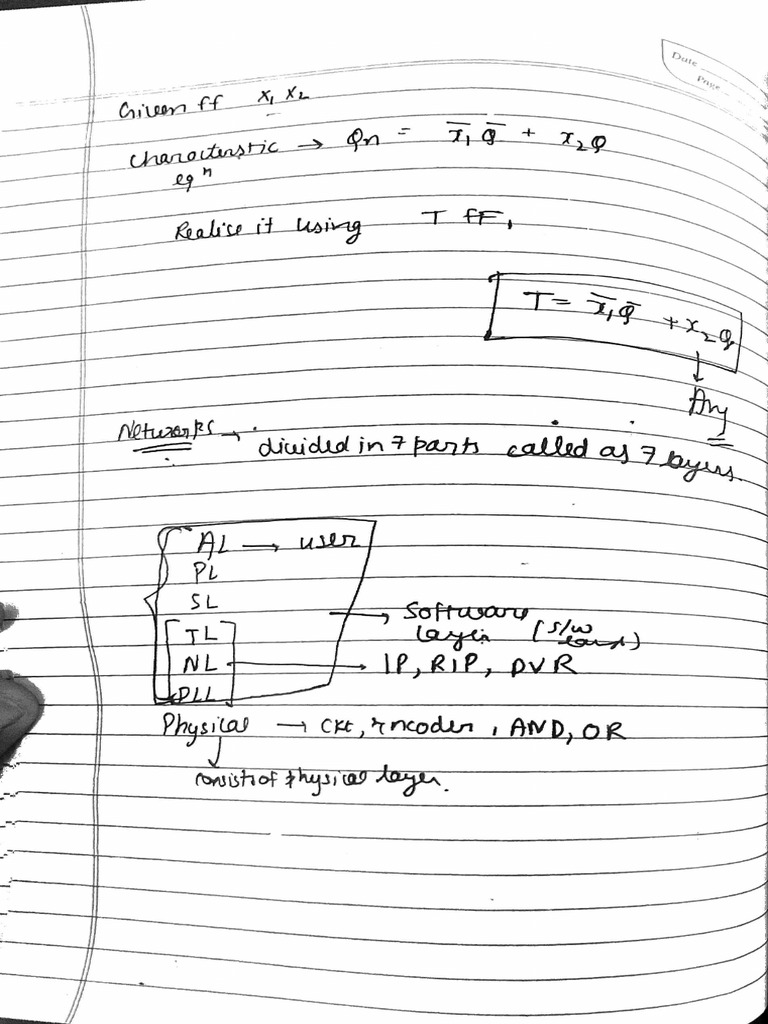 Date
Page
Given ff x₁ x₂
Characterstic → Qn = x̅₁ Q̅ + x₂Q
eqⁿ
Realise it using T ff,
T = x̅₁Q̅ + x₂Q
Ans
Networks → divided in 7 parts called as 7 layers.
AL → user
PL
SL → Software
layer (s/w
TL
NL → IP, RIP, DVR
DLL
Physical → CKt, Encoder, AND, OR
consists of physical layer.